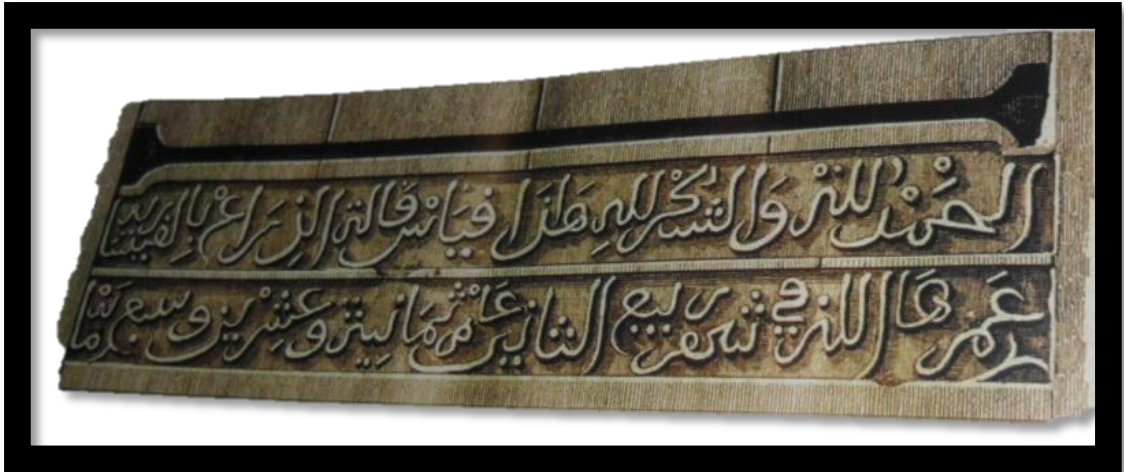 الحمد لله والشكر لله هذا قياس قالة الذراع بالقيسارية
عمرها الله في شهر ربيع الثاني عام ثمانية وعشرين وسبع مائة